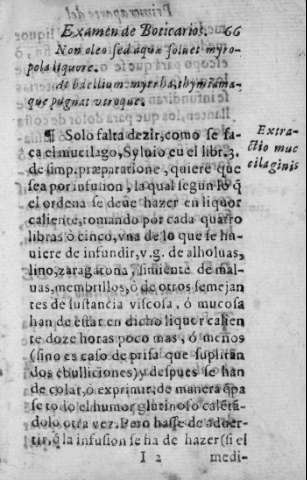 Examen de Boticarios. 66
Non oleo sed aqua soluet myro-
pola liquore.
de bdellium: myrrha, thymiama-
que pugnat vtroque.
¶ Solo falta dezir, como se sa-
ca el mucilago, Syluio en el libr. 3.
de simp. præparatione, quiere que
sea por infusion, la qual segun lo q̃
el ordena se deue hazer en liquor
caliente, tomando por cada quatro
libras ò cinco, vna de lo que se hu-
uiere de infundir, v. g. de alholuas,
lino, zaragatona, simiente de mal-
uas, membrillos, ò de otros semejan
tes de sustancia viscosa, ò mucosa
han de estar en dicho liquor calien
te doze horas poco mas, ò menos
(sino es caso de prisa que suplirán
dos ebulliciones) y despues se han
de colar, ò exprimir, de manera q̃ pa
se todo el humor glutinoso calen̄tã-
dolo otra vez. Pero hasse de aduer-
tir, q̃ la infusion se ha de hazer (si el
I 2 medi-
Extra-
ctio muc
cilaginis